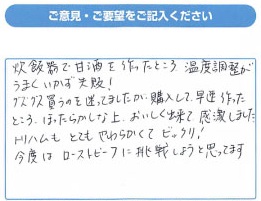 ご意見・ご要望をご記入ください
炊飯器で甘酒を作ったところ、温度調整が
うまくいかず失敗!
グズグズ買うのを迷ってましたが、購入して、早速作った
ところ、ほったらかしな上、おいしく出来て感激しました
トリハムもとてもやわらかくてビックリ!
今度はローストビーフに挑戦しようと思ってます